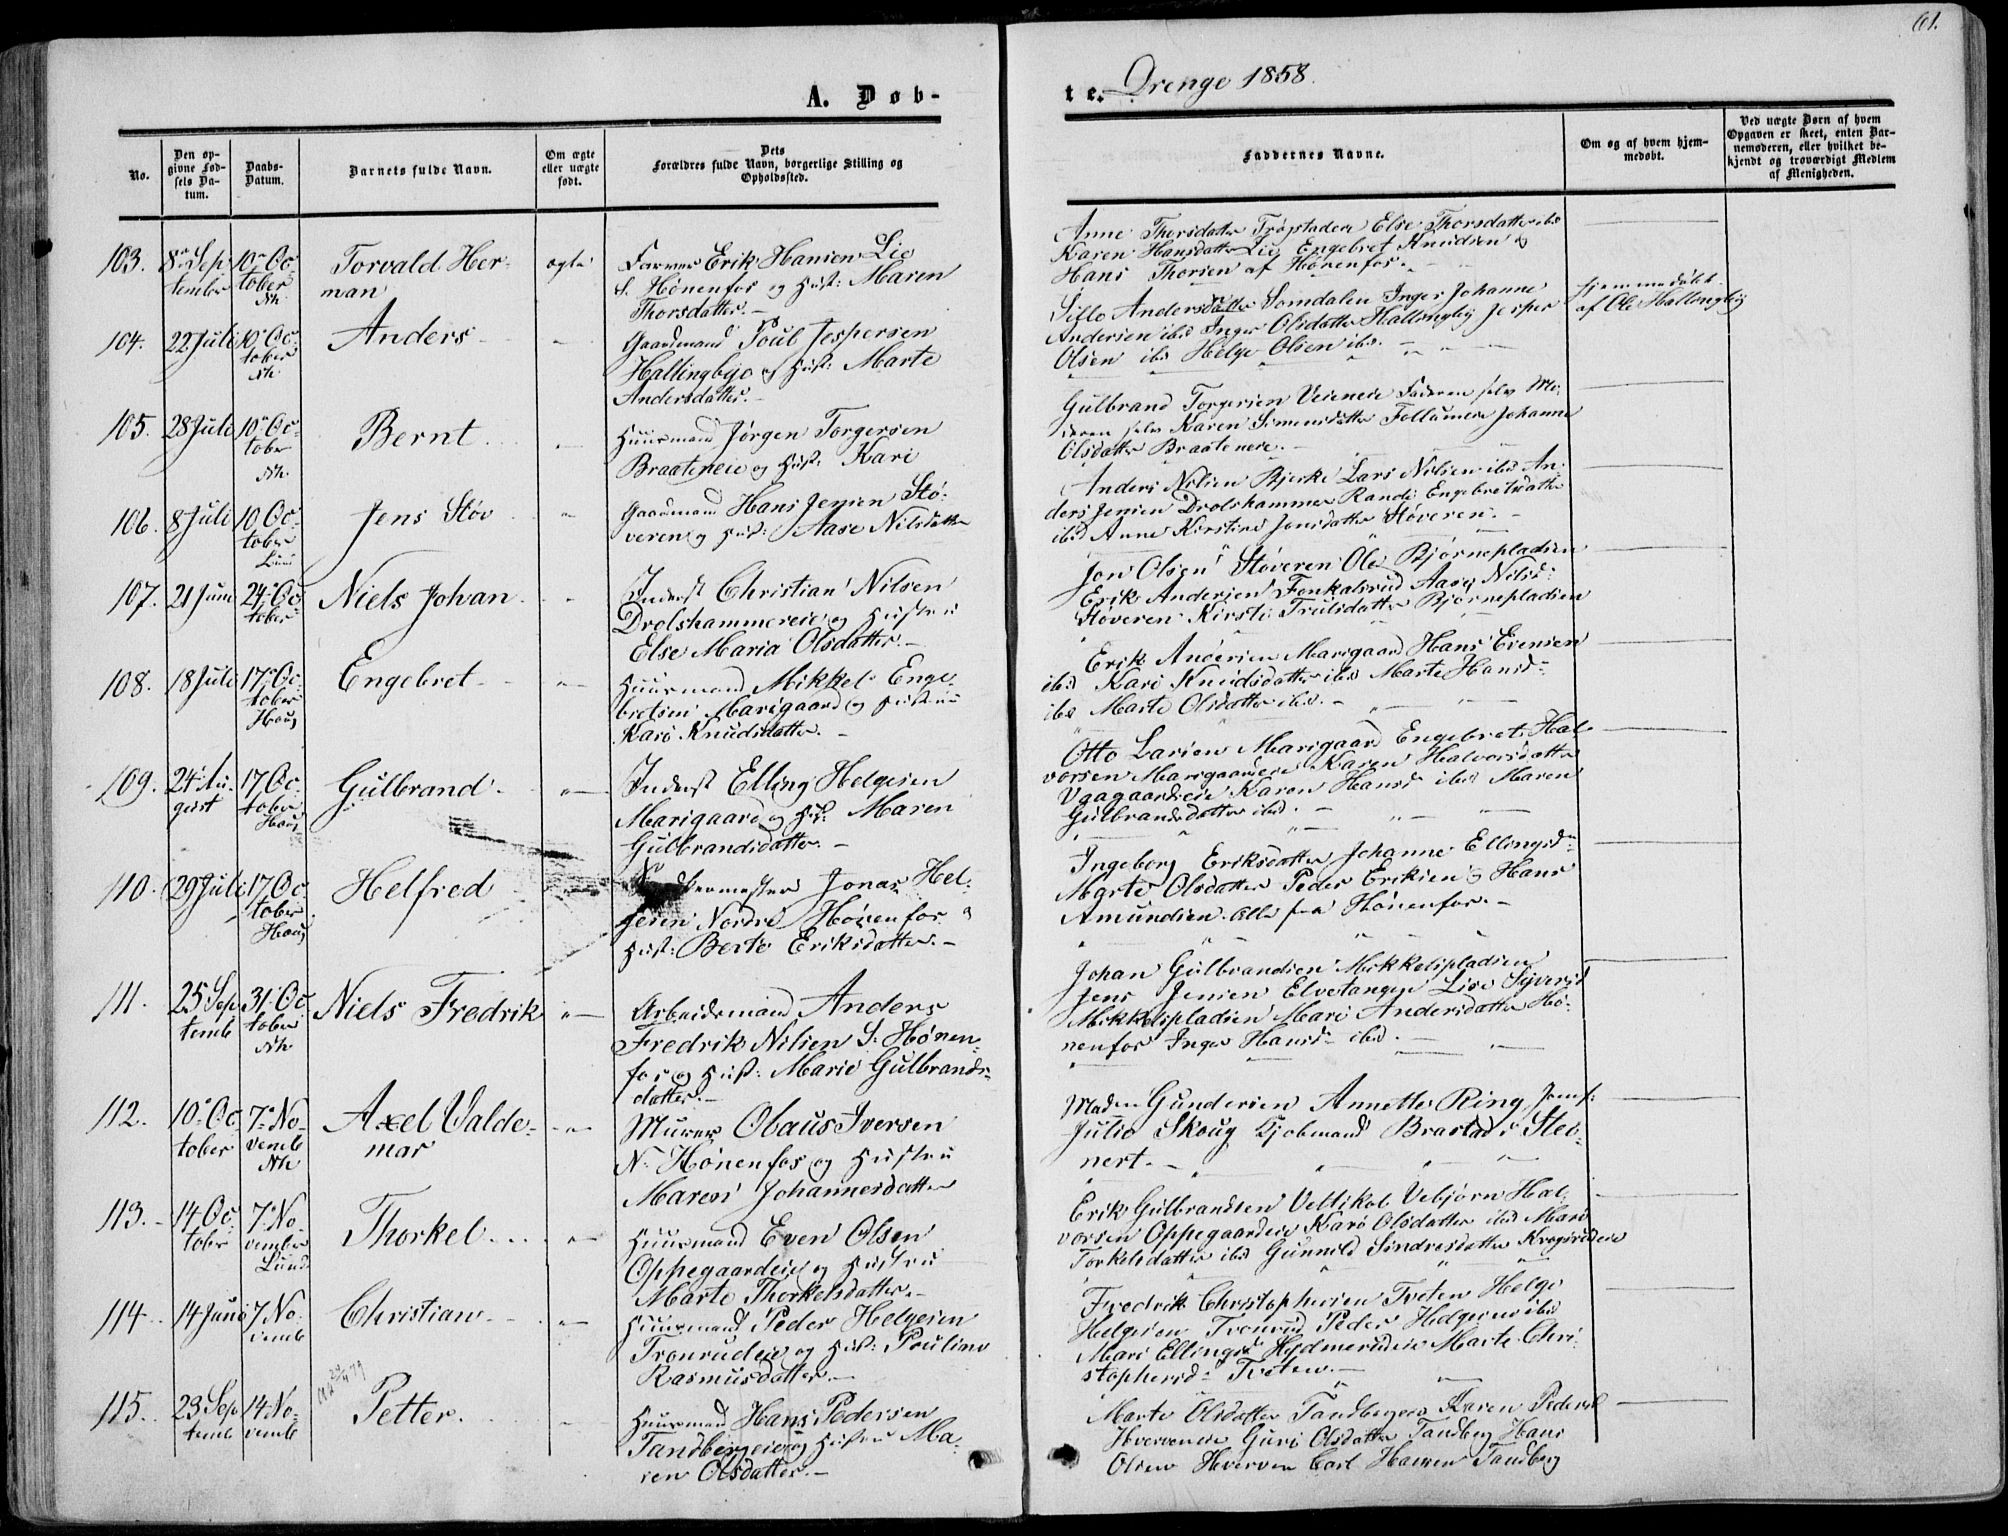 61.
A. Døb-
te. Drenge 1858.
No.
Den op-
givne Fød-
sels Da-
tum.
Daabs-
Datum.
Barnets fulde Navn.
Om ægte
eller uægte
født.
Dets
Forældres fulde Navn, borgerlige Stilling og
Opholdssted.
Faddernes Navne.
Om og af hvem hjem-
medøbt.
Ved uægte Børn af hvem
Opgaven er skeet, enten Bar-
nemoderen, eller hvilket be-
kjendt og troværdigt Medlem
af Menigheden.
103. 8de Sep-
tember
10de Oc-
tober
Nh.
Torvald Her-
man
ægte
Farver Erik Hansen Lie
S. Hønenfos og Hust: Maren
Thorsdatter. -
Anne Thorsdatter Trøgstaden Else Thorsdatter ibd
Karen Hansdatter Lie Engebret Knudsen og
Hans Thorsen af Hønenfos.
104. 22 Juli
10 Oc-
tober
Nh.
Anders
Gaardmand Poul Jespersen
Hallingbye og Hust: Marte
Andersdatter. -
Andersdatter Somdalen Inger Johanne
Andersen ibd Inger Olsdatter Hallingby Jesper
Olsen ibd Helge Olsen ibd. -
Hjemmedøbt
af Ole Hallingby
105. 28 Juli
10 Oc-
tober
Nh.
Bernt
Huusmand Jørgen Torgersen
Braateneie og Hust: Kari
Gulbrand Torgersen Veieneie Faderen selv Mo-
deren selv Karen Simensdatter Follumeie Johanne
Olsdatter Braateneie. -
106. 8 Juli
10 Oc-
tober
Lund
Jens Støv
Gaardmand Hans Jensen Stø-
veren og Hust: Aase Nilsdatter
Anders Nilsen Bjerke Lars Nilsen ibd An-
ders Jensen Drolshammer Randi Engebretsdatter
ibd Anne Kirstine Jensdatter Støveren. -
107. 21 Juni
24 Oc-
tober
Niels Johan
Inderst Christian Nilsen
Drolshammereie og Hustru
Else Maria Olsdatter. -
Jon Olsen Støveren Ole Bjørnepladsen
Erik Andersen Aase Nilsd:
Støveren Kirsti Trulsdatter Bjørnepladsen
108. 18 Juli
17 Oc-
tober
Houg
Engebret
Huusmand Mikkel Enge-
bretsen Marigaard og Hustru
Kari Knudsdatter. -
Erik Andersen Marigaard Hans Evensen
ibd Kari Knudsdatter ibd Marte Hansd:
ibd Marte Olsdatter ibd. -
109. 24 Au-
gust
17 Oc-
tober
Houg
Gulbrand
Inderst Elling Helgesen
Marigaard og Hust: Maren
Gulbrandsdatter. -
Otto Larsen Marigaard Engebret Hal-
vorsen Marigaardeie Karen Halvorsdatter
Vaagaardseie Karen Hansd: ibd Maren
Gulbrandsdatter ibd. -
110. 29 Juli
17 Oc-
tober
Houg
Helfred
Jonas Hel-
gesen Nordre Hønenfos og
Hust: Berte Eriksdatter. -
Ingeborg Eriksdatter Johanne Ellingsd:
Marte Olsdatter Peder Eriksen og Hans
Amundsen. Alle fra Hønenfos. -
111. 25 Sep-
temb
31 Oc-
tober
Nh
Niels Fredrik
Arbeidsmand Anders
Fredrik Nilsen S. Hønen-
fos og Hust: Marie Gulbrands-
datter. -
Johan Gulbrandsen Mikkelspladsen
Jens Jensen Elvetangen Lise Syversd
Mikkelspladsen Mari Andersdatter Hø-
nenfos Inger Hansd: ibd. -
112. 10 Oc-
tober
7 No-
vemb
Nh
Axel Valde-
mar
Murer Olaus Iversen
N: Hønenfos og Hustru
Maren Johannesdatter
Madm Gundersen Annette Ring Jomf:
Julie Skoug Kjøbmand Brastad Stei-
nert. -
113. 14 Oc-
tober
7 No-
vember
Lund
Thorkel
Huusmand Even Olsen
Oppegaardeie og Hustru
Marte Thorkelsdatter. -
Erik Gulbrandsen Veltikol Vebjørn Hal-
vorsen Oppegaardeie Kari Olsdatter ibd Mari
Torkelsdatter ibd Gunnild Sindresdatter
114. 14 Juni
7 No-
vemb
Christian
Huusmand Peder Helgesen
Tronrudeie og Hust: Pauline
Rasmusdatter. -
Fredrik Christophersen Tveten Helge
Helgesen Tronrud Peder Helgesen ibd
Mari Ellingsd Marte Chri-
stophersd: Tveten. -
115. 23 Sep-
temb
14 No-
vemb
Petter.
Huusmand Hans Pedersen
Tandbergeie og Hustru Ma-
ren Olsdatter. -
Marte Olsdatter Tandbergeie Karen Pedersd
Hverveneie Guri Olsdatter Tandberg Hans
Olsen Hverven Carl Hansen Tandberg